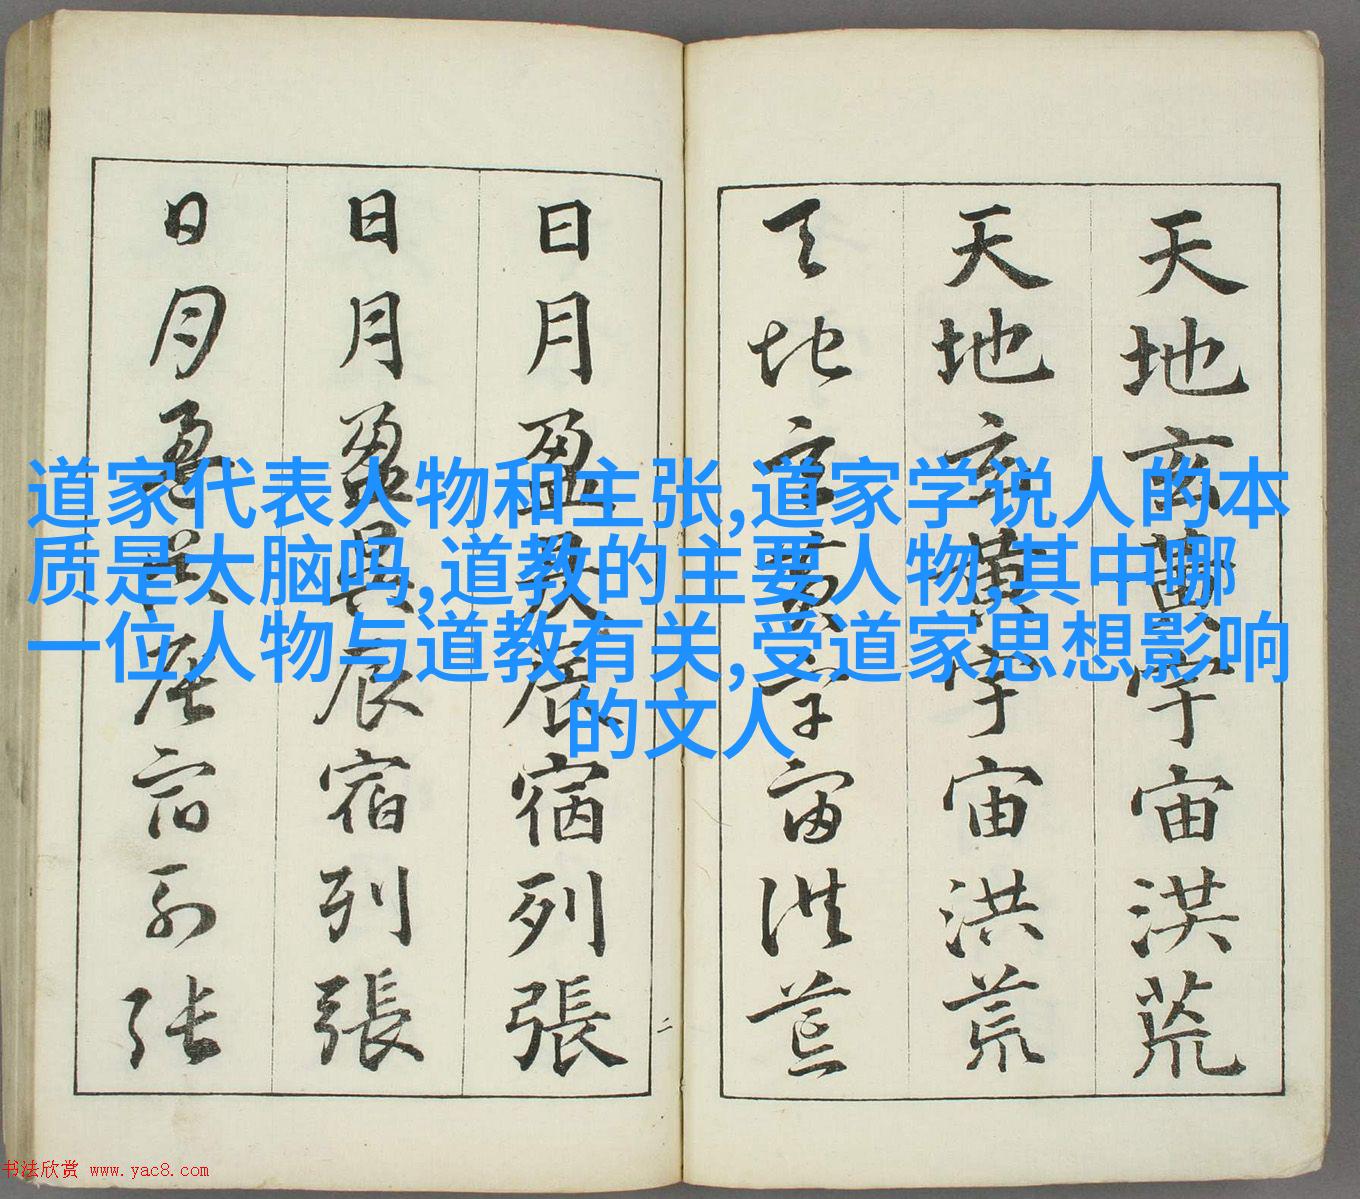 道家代表人物和主张,道家学说人的本
质是大脑吗,道教的主要人物,其中哪
一位人物与道教有关,受道家思想影响
的文人
天地玄黃宇宙洪荒
天地玄黃宇宙洪荒
天地玄黃宇宙洪荒
二
日月盈昃辰宿列張
日月盈昃辰宿列張
日月盈昃辰宿列張
书法欣赏 www.yac8.com